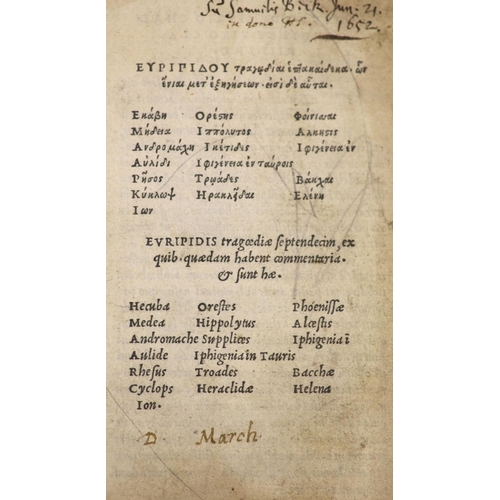 Su Samuelis Jun. 21.
in dono 1652.
ΕΥΡΙΠΙΔΟΥ τραγῳδίαι ἑπτακαίδεκα. ὧν
ἔνιαι μετ' ἐξηγήσεων. εἰσὶ δὲ αὗται.
Εκάβη Ορέστης Φοίνιοσαι
Μήδεια Ιππόλυτος Αλκηστις
Ανδρομάχη Ικέτιδες Ιφιγένεια ἐν
Αὐλίδι Ιφιγένεια ἐν ταύροις
Ρῆσος Τρωάδες Βάκχαι
Κύκλωψ Ηρακλεῖδαι Ελένη
Ιων
EVRIPIDIS tragœdiæ septendecim, ex
quib. quædam habent commentaria.
& sunt hæ.
Hecuba Orestes Phœnissæ
Medea Hippolytus Alcestis
Andromache Supplices Iphigenia ī
Aulide Iphigenia in Tauris
Rhesus Troades Bacchæ
Cyclops Heraclidæ Helena
Ion.
D. March